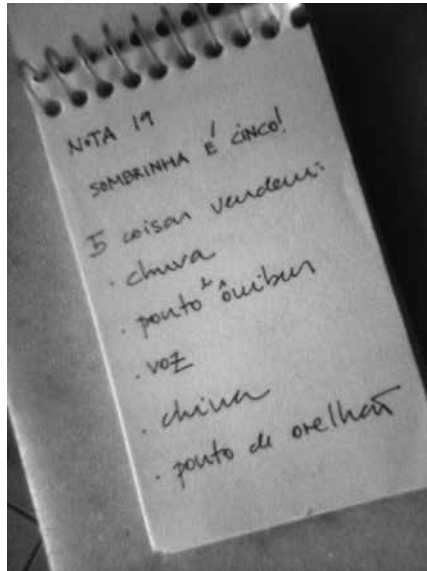 NOTA 19
SOMBRINHA É CINCO!
5 coisas vendem:
. chuva
. ponto de ônibus
. voz
. china
. ponto de orelhão